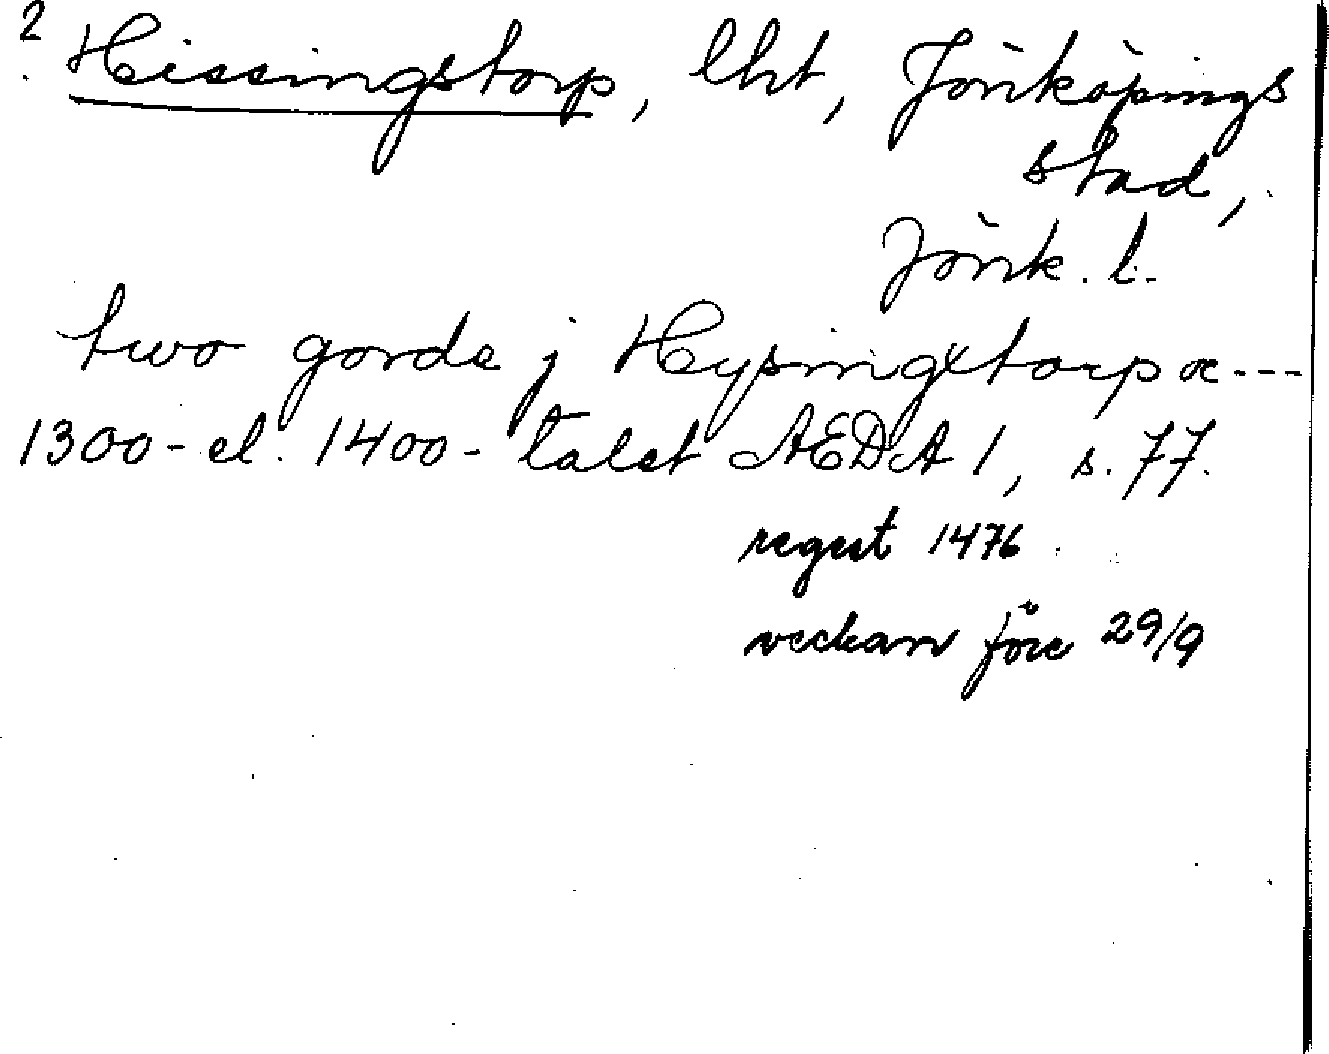 2 Hissingstorp, lht, Jönköpings
stad,
Jönk. l.
two gorda j Hysingxtorpæ ---
1300- el. 1400-talet AEDA 1, s. 77.
regest 1476.
veckan före 29/9